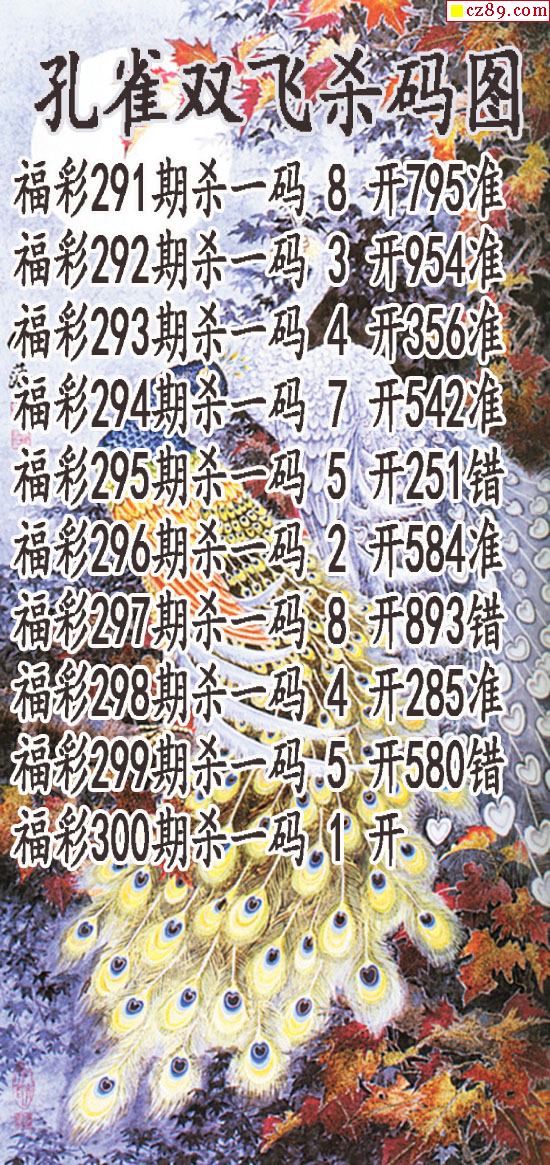 cz89.com
孔雀双飞杀码图
福彩291期杀一码 8 开795准
福彩292期杀一码 3 开954准
福彩293期杀一码 4 开356准
福彩294期杀一码 7 开542准
福彩295期杀一码 5 开251错
福彩296期杀一码 2 开584准
福彩297期杀一码 8 开893错
福彩298期杀一码 4 开285准
福彩299期杀一码 5 开580错
福彩300期杀一码 1 开